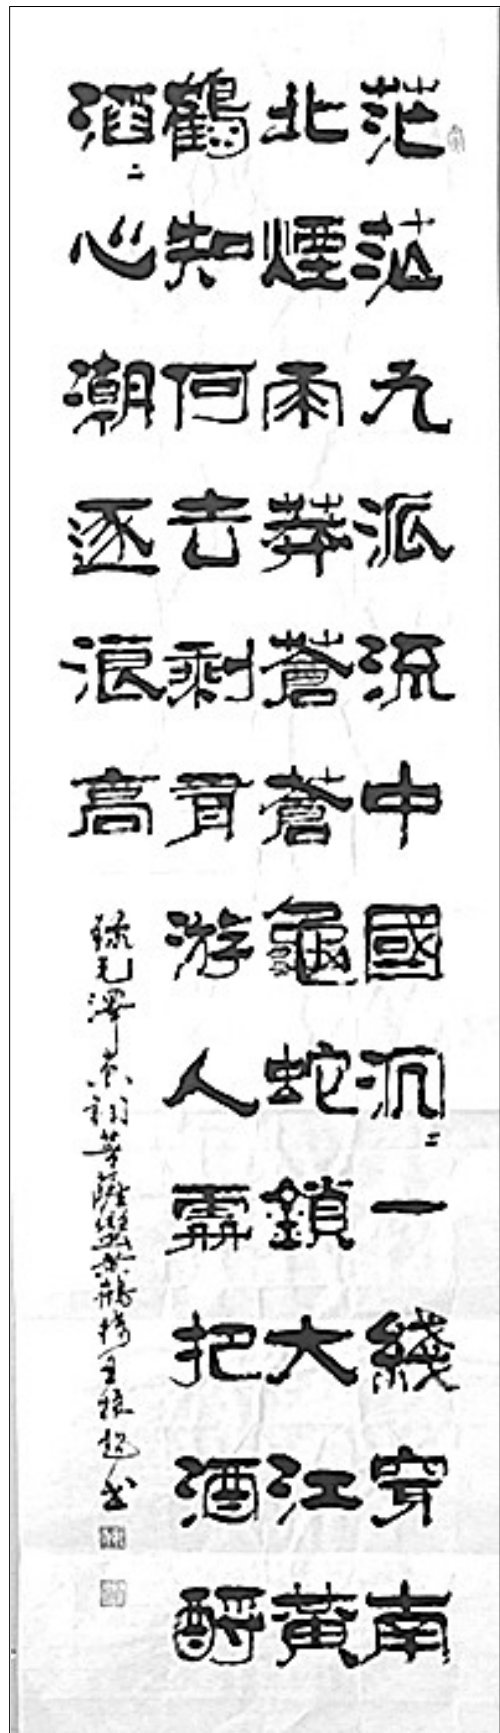 茫茫九派流中國沉〻一綫穿南
北煙雨莽蒼蒼龜蛇鎖大江黃
鶴知何去剩有游人處把酒酹
滔〻心潮逐浪高
錄毛澤東詞菩薩蠻黃鶴樓王書